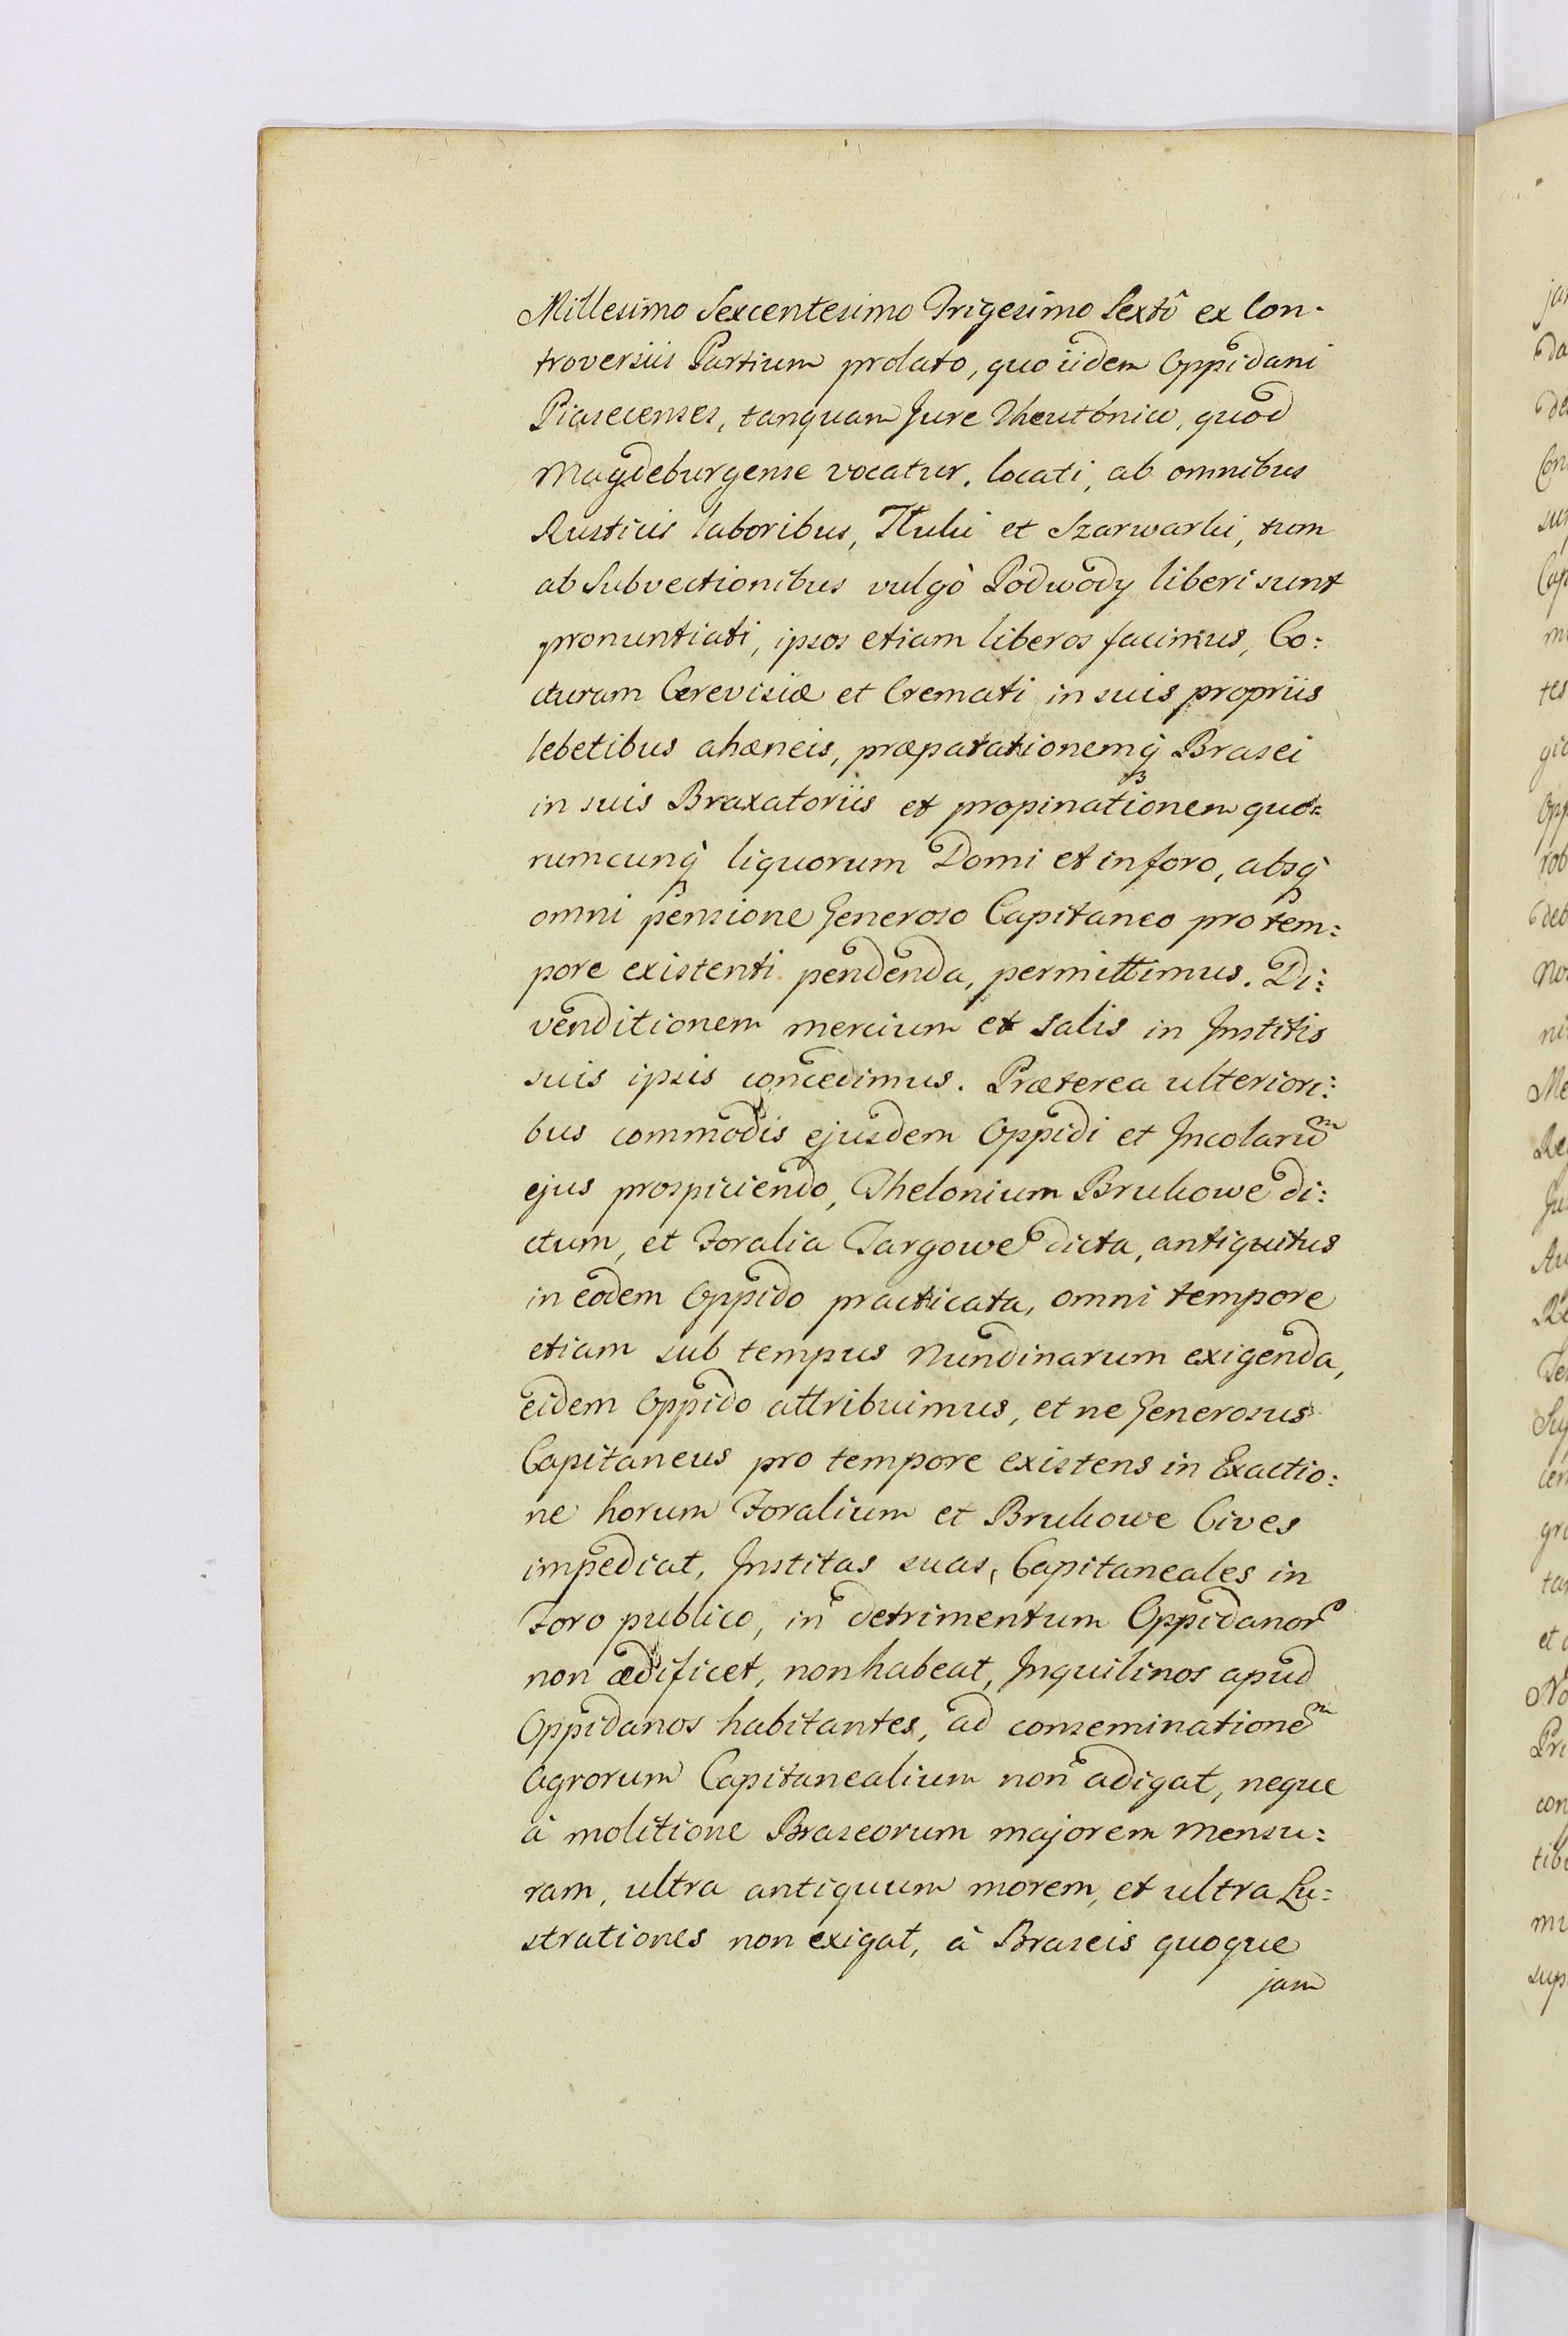 Millesimo Sexcentesimo Trigesimo Sextô ex Con-
troversiis Partium prolato, quo iidem Oppidani
Piasecenses, tanquam Jure Theutonico, quod
Magdeburgense vocatur, locati, ab omnibus
Rusticis laboribus, Tłuki et Szarwarki, tum
ab Subvectionibus vulgò Podwody liberi sunt
pronuntiati, ipsos etiam liberos facimus, Co:
cturam Cerevisiæ et Cremati in suis propriis
lebetibus ahæneis, præparationemq̃ Brasei
in suis Braxatoriis et propinationem quo=
rumcunq̃ liquorum Domi et in foro, absq̃
omni pensione Generoso Capitaneo pro tem:
pore existenti pendenda, permittimus. Di:
venditionem mercium et salis in Institis
suis ipsis concedimus. Præterea ulteriori:
bus commodis ejusdem Oppidi et Incolaru͠m
ejus prospiciendo, Thelonium Brukowe di:
ctum, et Foralia Targowe dicta, antiquitus
in eodem Oppido practicata, omni tempore
etiam sub tempus Nundinarum exigenda,
eidem Oppido attribuimus, et ne Generosus
Capitaneus pro tempore existens in Exactio:
ne horum Foralium et Brukowe Cives
impediat, Institas suas, Capitaneales in
Foro publico, in detrimentum Oppidanor͠
non ædificet, non habeat, Inquilinos apud
Oppidanos habitantes, ad conseminatione͠m
Agrorum Capitanealium non adigat, neque
à molitione Braseorum majorem mensu:
ram, ultra antiquum morem, et ultra Lu:
strationes non exigat, à Braseis quoque
jam